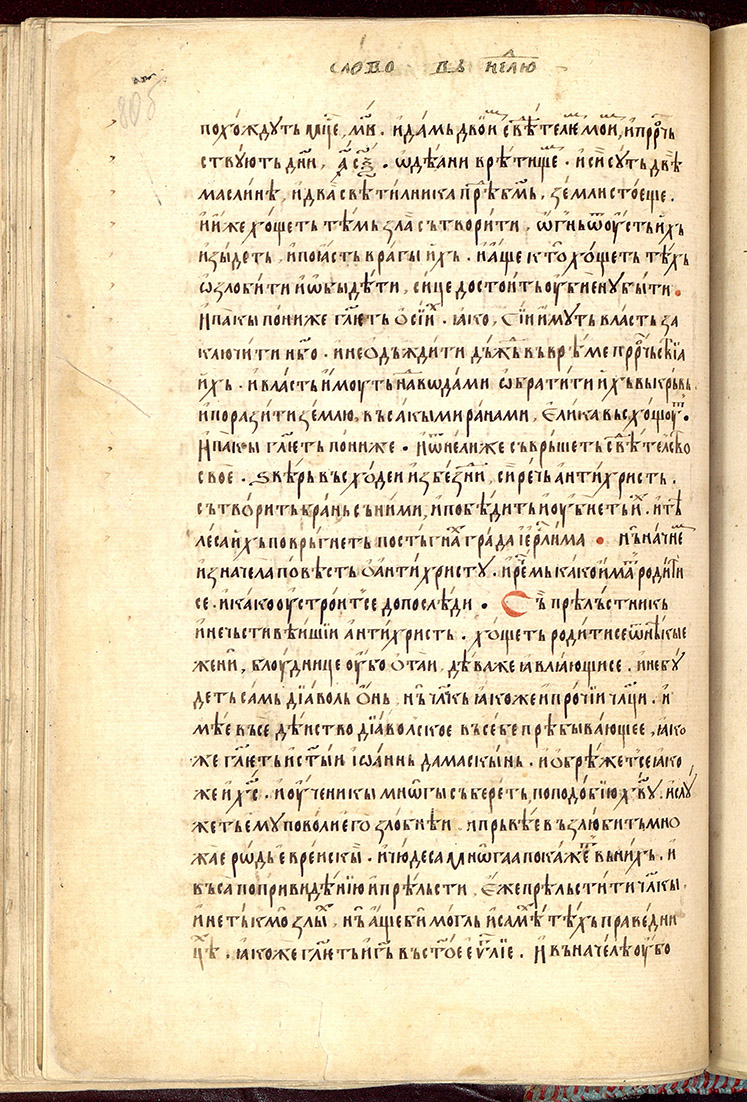 слово въ не҃лю
походꙋть мц҃е, м҃в. и дамь двои свѣтелие мои, и прⷪ҇рчь
ствꙋють дн҃ïи, ҂а с҃ѯ. ѡдѣани врѣтище. и сïи сꙋть двѣ
маслинѣ, и два свѣтилника прѣⷣ б҃мь, земли стоеще.
и иже хощеть тѣмь зла сътворити, ѡгнь ѿ оусть ихь
изыдеть, и поꙗсть врагы ихь. и аще кто хощеть тѣхь
ѡзлобити и ѡбыдѣти, сице достоить оубïенꙋ быти.
И пакы пониже гл҃еть о сïиⷯ. ꙗко, сïи имꙋть власть за
ключити нб҃о. и не одъждити дъжⷣь въ врѣме прⷪ҇рчьскïа
ихь. и власть имоуть наⷣ водами ѡбратити ихь вь кръвь
и поразити землю, въсакыми ранами, Елика вьсхощоуⷮ.
И пакы гл҃еть пониже. и ѡнелиже съврьшеть свѣтелⸯство
свое. Ѕвѣрь въсходеи из безⷣнïи, сирѣчь антихристь.
сътворить брань съ ними, и побѣдить и оубïеть иⷯ. и тѣ
леса ихь поврьгнеть по стьгнаⷯ града ïер҃лима. нь начнеⷨ
из начела повѣсть о антихристꙋ. и рцѣмь како иматⸯ родити
се. и како оустроитсе до послѣди. Съ прѣльстникь
и нечьстивѣишïи антихристь. хощеть родитисе ѿ нѣкые
жени, блоуднице оубо отаи, дѣва же ꙗвлꙗющисе. и не бꙋ
деть самь дïаволь онь, нь чл҃кь ꙗкоже и прочïи чл҃ци. и
мѣе въсе дѣиство дïаволское въ себе прѣбывающее, ꙗко
же гл҃еть и ст҃ыи ïѡаннь дамаскынь. и обрѣжетсе ꙗко
же и х҃с. и оученикы мнѡгы събереть, по подобïю х҃вꙋ. и слꙋ
жеть емꙋ по воли его злобнѣи. и прьвѣе възлюбить мно
жае рѡдь еврейскы. и чюдеса мнѡгаа покажеⷮ вь нихь. и
въса по привидѣнïю и прѣльсти, Еже прѣльстити чл҃кы.
и не тькмо злыⷯ, нь аще би могль и самѣⷯ тѣхь праведни
цѣ. ꙗкоже гл҃еть и г҃ь въ ст҃ое еѵ҃лïе. И въ начелѣ оубо